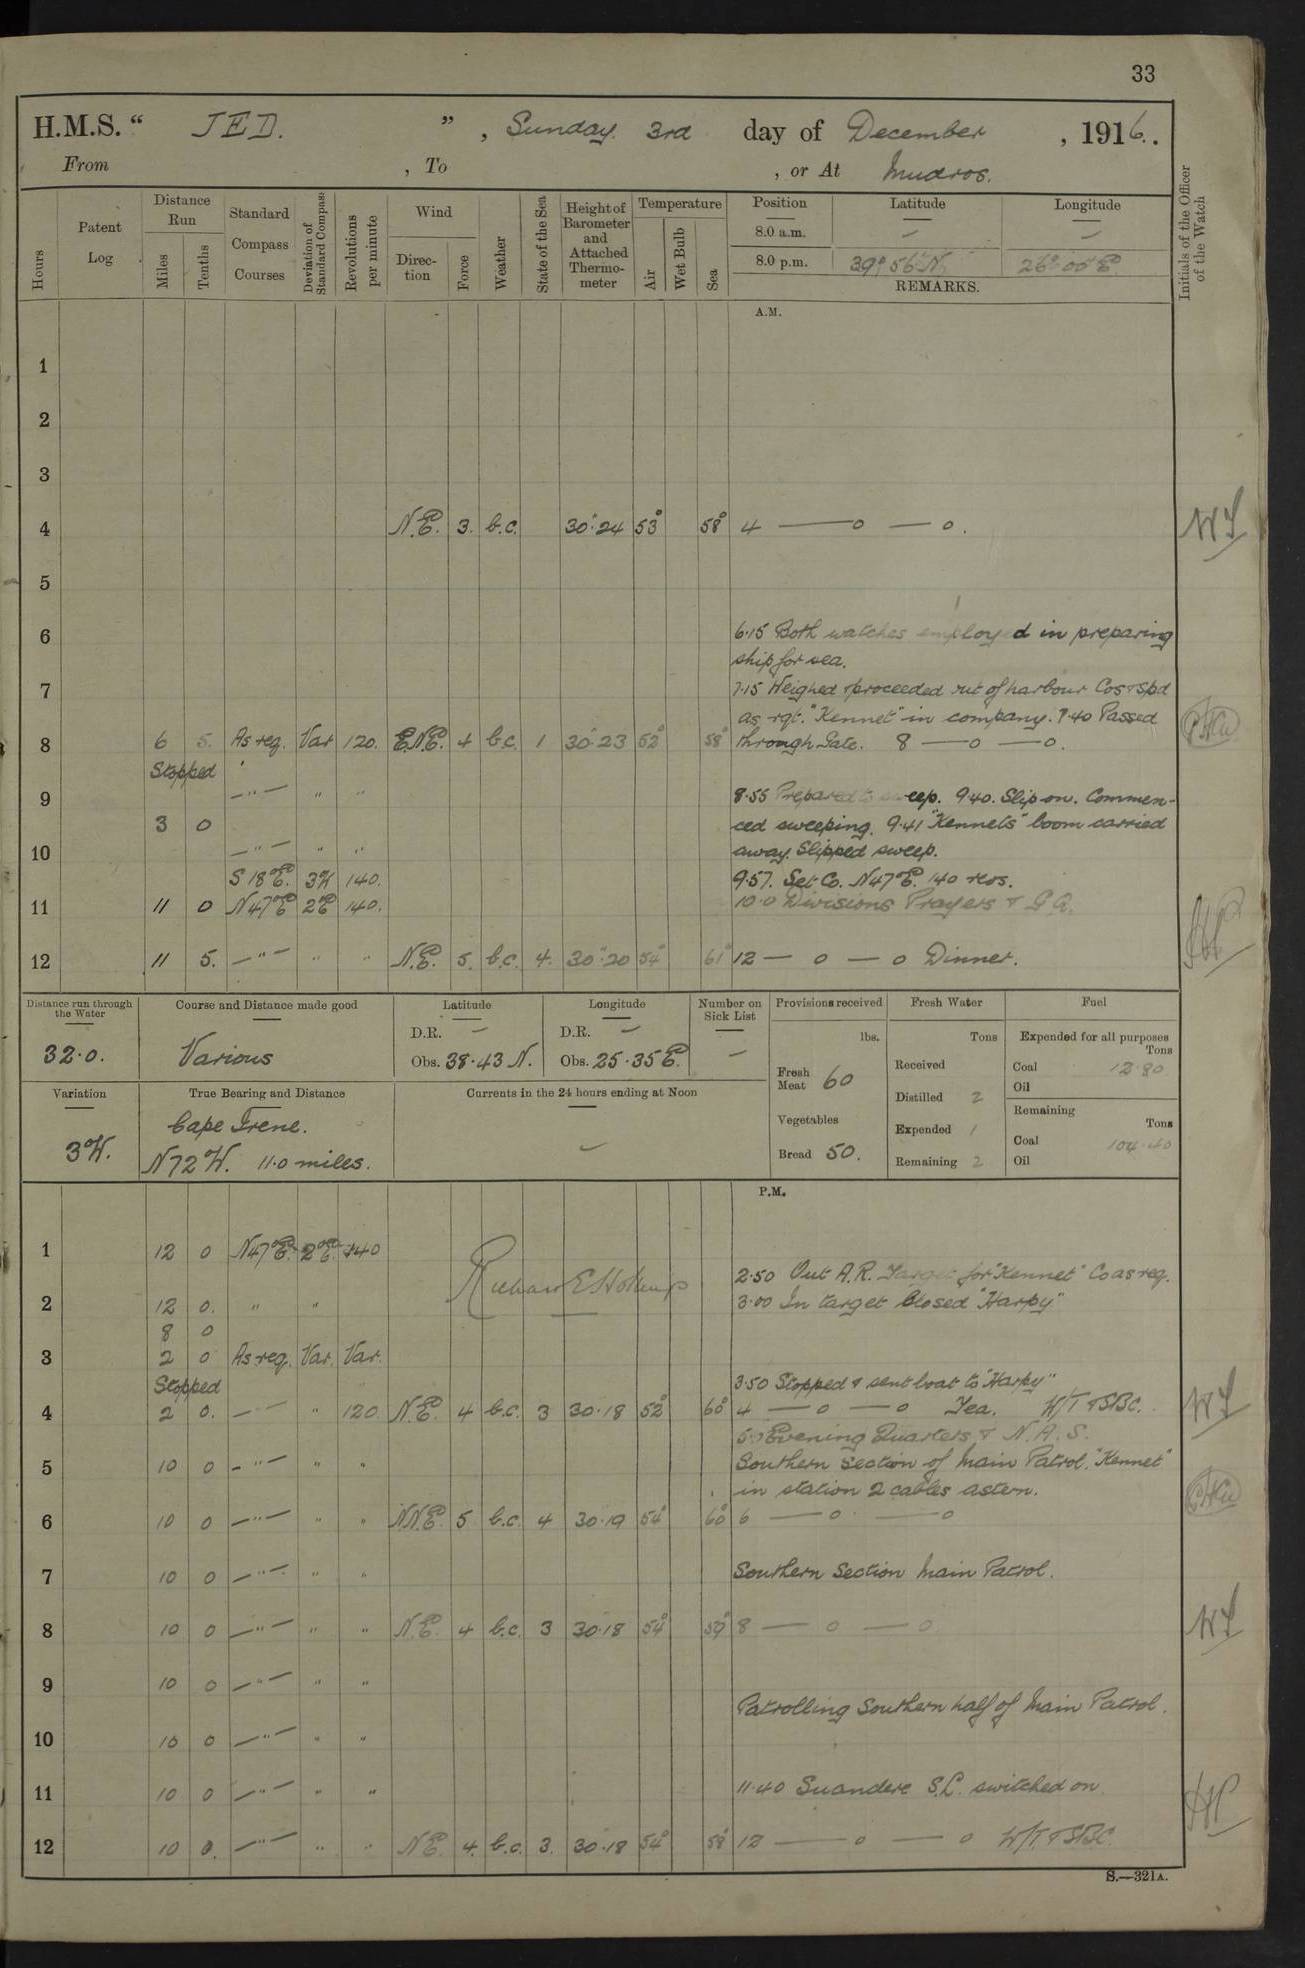 33
H.M.S. " JED. ", Sunday 3rd day of December, 1916.
From , To , or At Mudros.
Hours
Patent Log
Distance Run
Miles
Tenths
Standard Compass Courses
Deviation of Standard Compass
Revolutions per minute
Wind
Direction
Force
Weather
State of the Sea
Height of Barometer and Attached Thermometer
Temperature
Air
Wet Bulb
Sea
Position Latitude Longitude
8.0 a.m. — —
8.0 p.m. 39° 56' N. 26° 00' E
REMARKS.
Initials of the Officer of the Watch
A.M.
1
2
3
4 N.E. 3. b.c. 30.24 53° 58° 4 — o — o.
5
6 6.15 Both watches employed in preparing
ship for sea.
7 7.15 Weighed & proceeded out of harbour Cos & Spd
as rqt. "Kennet" in company. 7.40 Passed
8 6 5. As req. Var 120. E.N.E. 4 b.c. 1 30.23 52° 58° through Gate. 8 — o — o.
Stopped
9 — " — " " 8.55 Prepared to sweep. 9.40. Slip on. Commen-
3 0 ced sweeping. 9.41 "Kennets" boom carried
10 — " — " " away. Slipped sweep.
S 18° E. 3°W 140. 9.57. Set Co. N47°E. 140 revs.
11 11 0 N47°E 2°E 140. 10.0 Divisions Prayers &
12 11 5. — " — " " N.E. 5. b.c. 4. 30.20 54° 61° 12 — o — o Dinner.
Distance run through the Water
32.0.
Course and Distance made good
Various
Latitude
D.R. —
Obs. 38.43 N.
Longitude
D.R. —
Obs. 25.35 E.
Number on Sick List
—
Provisions received
lbs.
Fresh Meat 60
Vegetables
Bread 50.
Fresh Water
Tons
Received
Distilled 2
Expended 1
Remaining 2
Fuel
Expended for all purposes
Tons
Coal 12.80
Oil
Remaining
Tons
Coal 104.40
Oil
Variation
3°W.
True Bearing and Distance
Cape Irene.
N72°W. 11.0 miles.
Currents in the 24 hours ending at Noon
—
P.M.
1 12 0 N47°E. 2°E. 140
2.50 Out A.R. Target for "Kennet" Co as req.
2 12 0. " " 3.00 In target Closed "Harpy"
8 0
3 2 0 As req. Var. Var.
Stopped 3.50 Stopped & sent boat to "Harpy"
4 2 0. — " — " 120 N.E. 4 b.c. 3 30.18 52° 60° 4 — o — o Tea. W/T & SBC.
5.0 Evening Quarters & N.A.S.
5 10 0 — " — " " Southern Section of Main Patrol. "Kennet"
in station 2 cables astern.
6 10 0 — " — " " N.N.E. 5 b.c. 4 30.19 54° 60° 6 — o — o
7 10 0 — " — " " Southern Section Main Patrol.
8 10 0 — " — " " N.E. 4 b.c. 3 30.18 54° 59° 8 — o — o
9 10 0 — " — " "
Patrolling Southern half of Main Patrol.
10 10 0 — " — " "
11 10 0 — " — " " 11.40 Suandere S.L. switched on
12 10 0. — " — " " N.E. 4. b.c. 3. 30.18 54° 58° 12 — o — o W/T & SBC.
S.—321A.